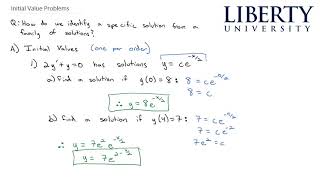 Initial Value Problems
LIBERTY
UNIVERSITY
Q: How do we identify a specific solution from a
family of solutions?
A) Initial Values (one per order)
1) 2y'+y=0 has solutions y = ce^{-x/2}
a) Find a solution if y(0)=8 : 8 = ce^{-0/2}
8 = c
∴ y = 8e^{-x/2}
b) find a solution if y(4)=7 : 7 = ce^{-4/2}
7 = ce^{-2}
7e^2 = c
∴ y = 7e^2 e^{-x/2}
y = 7e^{2-x/2}